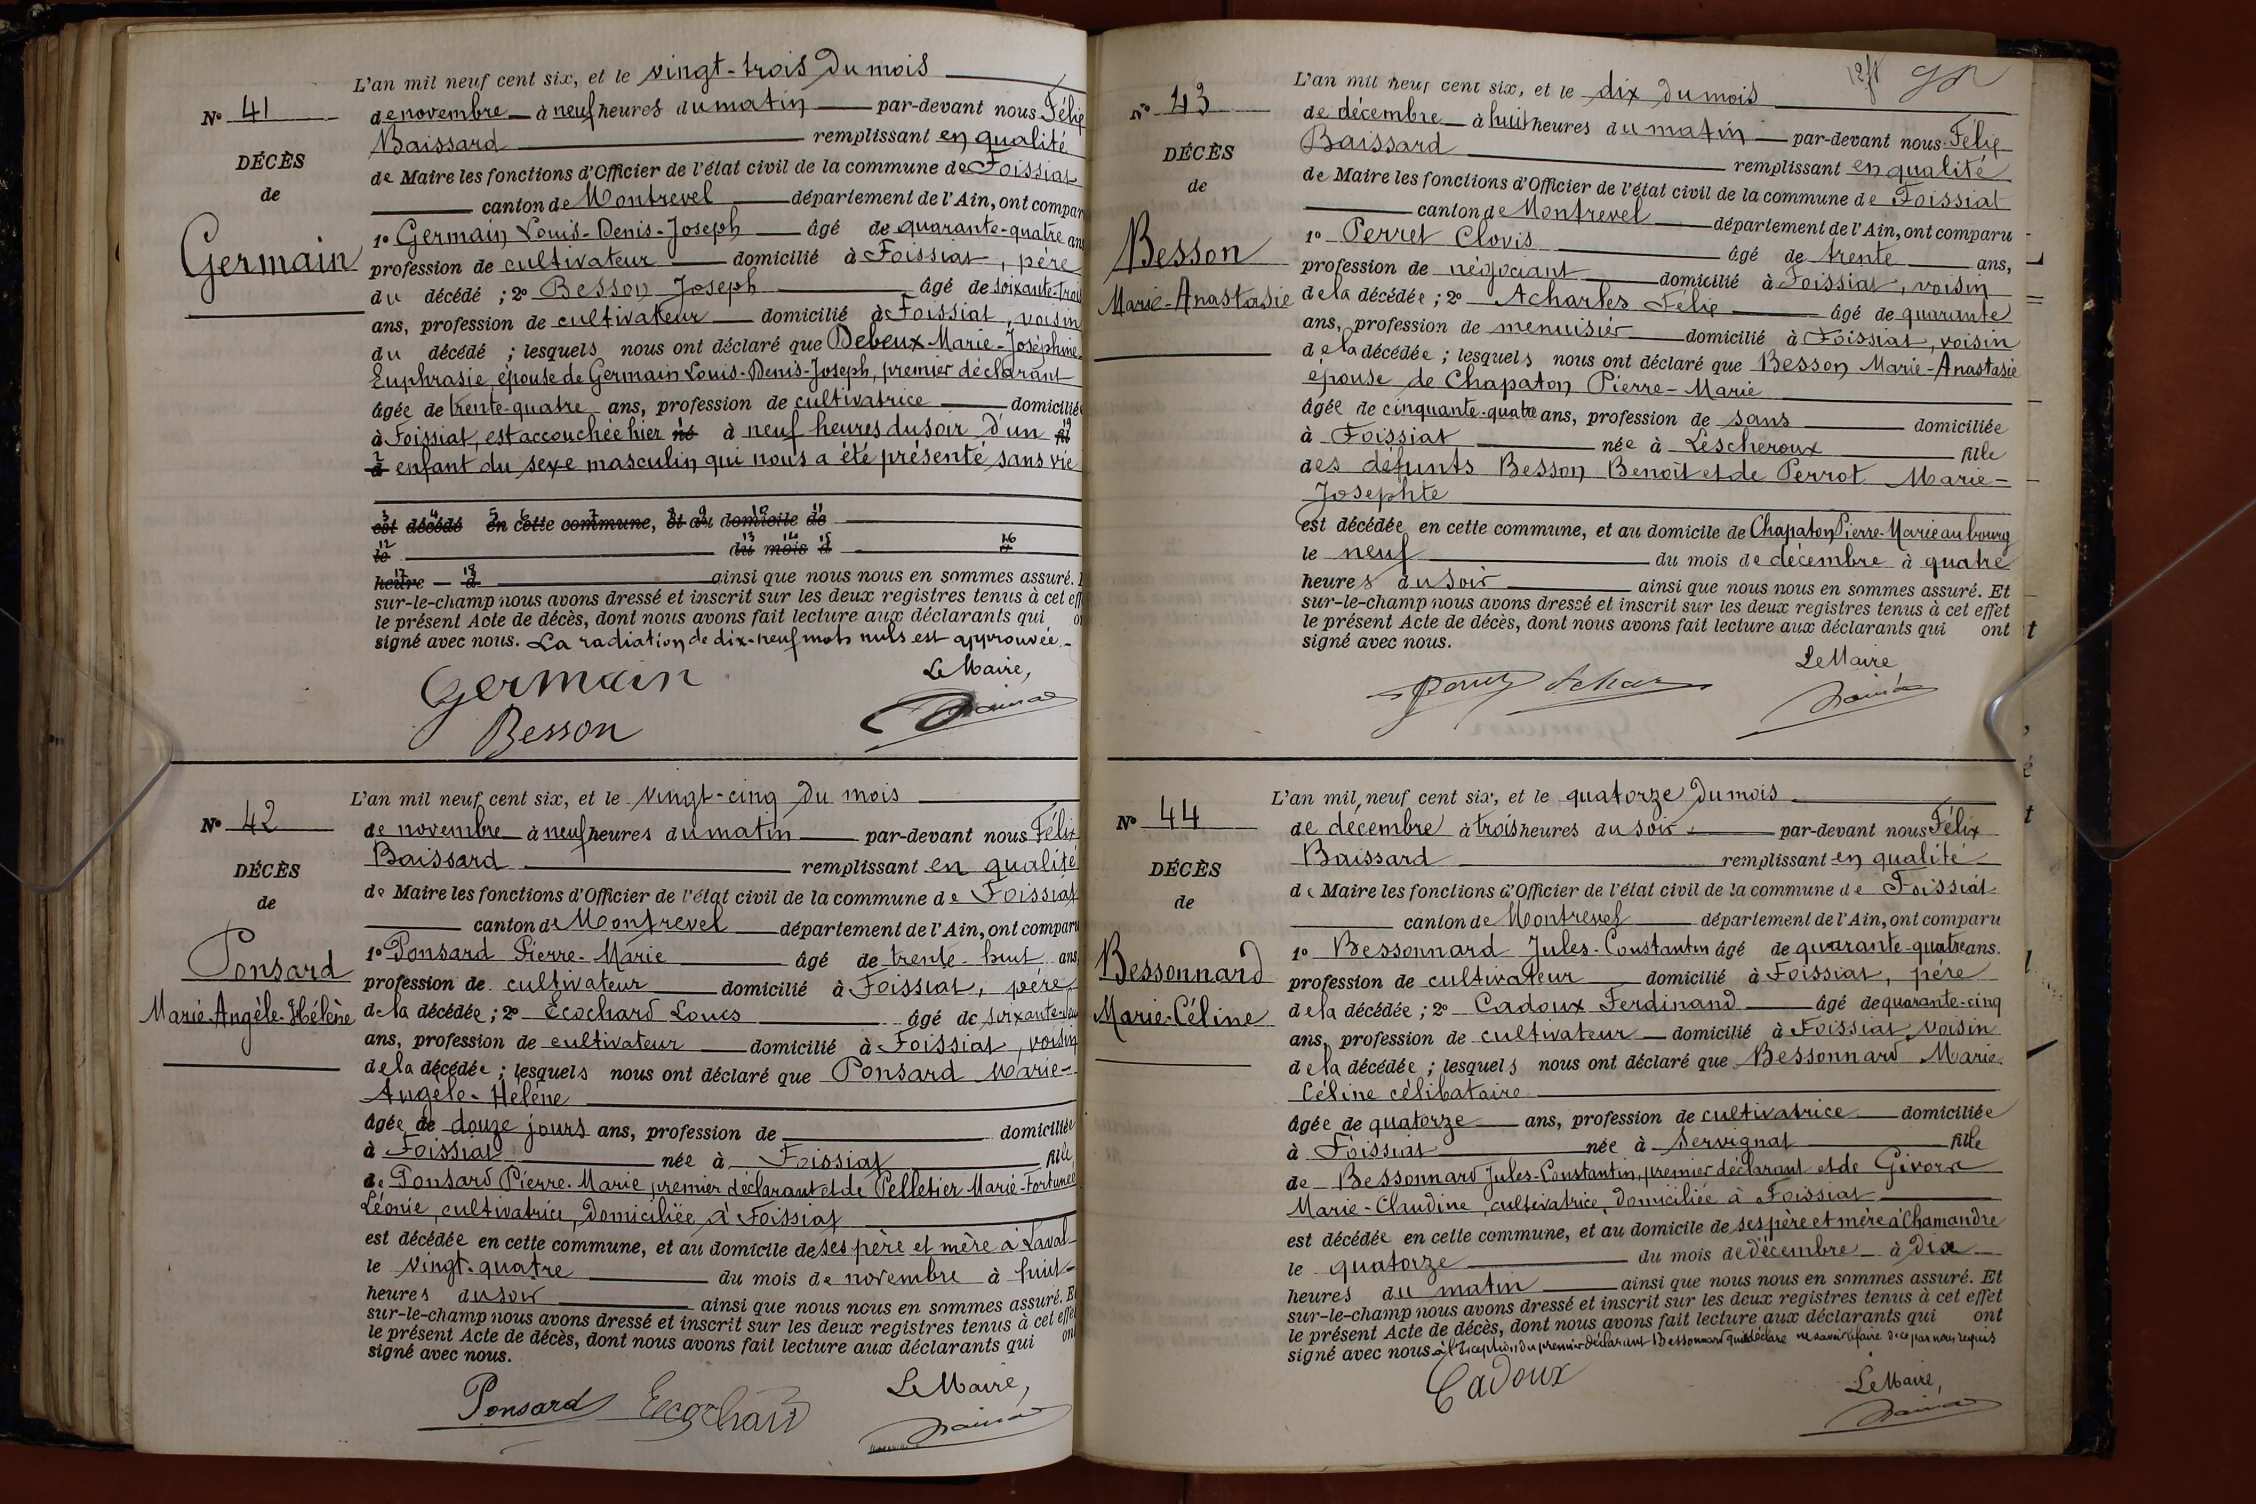 L'an mil neuf cent six, et le vingt-trois du mois
N° 41
de novembre à neuf heures du matin par-devant nous Félix
Baissard remplissant en qualité
DÉCÈS
de Maire les fonctions d'Officier de l'état civil de la commune de Foissiat
de
canton de Montrevel département de l'Ain, ont compar
Germain
1° Germain Louis-Denis-Joseph âgé de quarante-quatre ans
profession de cultivateur domicilié à Foissiat, père
du décédé ; 2° Besson Joseph âgé de soixante-trois
ans, profession de cultivateur domicilié à Foissiat, voisin
du décédé ; lesquels nous ont déclaré que Debeux Marie-Joséphine-
Euphrasie, épouse de Germain Louis-Denis-Joseph, premier déclarant
âgée de trente-quatre ans, profession de cultivatrice domiciliée
à Foissiat, est accouchée hier né à neuf heures du soir d'un fil
à enfant du sexe masculin qui nous a été présenté sans vie
est décédé en cette commune, et au domicile de
le du mois d à
heure d ainsi que nous nous en sommes assuré.
sur-le-champ nous avons dressé et inscrit sur les deux registres tenus à cet eff
le présent Acte de décès, dont nous avons fait lecture aux déclarants qui o
signé avec nous. La radiation de dix-neuf mots nuls est approuvée.-
Le Maire,
Germain
Besson
L'an mil neuf cent six, et le vingt-cinq du mois
N° 42
de novembre à neuf heures du matin par-devant nous Félix
Baissard remplissant en qualité
DÉCÈS
de Maire les fonctions d'Officier de l'état civil de la commune de Foissiat
de
canton de Montrevel département de l'Ain, ont comparu
Ponsard
Marie-Angèle-Hélène
1° Ponsard Pierre-Marie âgé de trente-huit ans
profession de cultivateur domicilié à Foissiat, père
de la décédée ; 2° Ecochard Louis âgé de soixante-
ans, profession de cultivateur domicilié à Foissiat, voisin
de la décédée ; lesquels nous ont déclaré que Ponsard Marie-
Angèle-Hélène
âgée de douze jours ans, profession de domiciliée
à Foissiat née à Foissiat fille
de Ponsard Pierre-Marie, premier déclarant et de Pelletier Marie-Fortunée
Léonie, cultivatrice, domiciliée à Foissiat
est décédée en cette commune, et au domicile de ses père et mère à Laval
le vingt-quatre du mois de novembre à huit
heures du soir ainsi que nous nous en sommes assuré. E
sur-le-champ nous avons dressé et inscrit sur les deux registres tenus à cet effet
le présent Acte de décès, dont nous avons fait lecture aux déclarants qui ont
signé avec nous.
Le Maire,
Ponsard Ecochard
L'an mil neuf cent six, et le dix du mois
N° 43
de décembre à huit heures du matin par-devant nous Félix
Baissard remplissant en qualité
DÉCÈS
de Maire les fonctions d'Officier de l'état civil de la commune de Foissiat
de
canton de Montrevel département de l'Ain, ont comparu
Besson
Marie-Anastasie
1° Perret Clovis âgé de trente ans,
profession de négociant domicilié à Foissiat, voisin
de la décédée ; 2° Acharles Félix âgé de quarante
ans, profession de menuisier domicilié à Foissiat, voisin
de la décédée ; lesquels nous ont déclaré que Besson Marie-Anastasie
épouse de Chapaton Pierre-Marie
âgée de cinquante-quatre ans, profession de sans domiciliée
à Foissiat née à Lescheroux fille
des défunts Besson Benoît et de Perrot Marie-
Josephte
est décédée en cette commune, et au domicile de Chapaton Pierre-Marie au bourg
le neuf du mois de décembre à quatre
heures du soir ainsi que nous nous en sommes assuré. Et
sur-le-champ nous avons dressé et inscrit sur les deux registres tenus à cet effet
le présent Acte de décès, dont nous avons fait lecture aux déclarants qui ont
signé avec nous.
Le Maire
L'an mil neuf cent six, et le quatorze du mois
N° 44
de décembre à trois heures du soir par-devant nous Félix
Baissard remplissant en qualité
DÉCÈS
de Maire les fonctions d'Officier de l'état civil de la commune de Foissiat
de
canton de Montrevel département de l'Ain, ont comparu
Bessonnard
Marie-Céline
1° Bessonnard Jules-Constantin âgé de quarante-quatre ans.
profession de cultivateur domicilié à Foissiat, père
de la décédée ; 2° Cadoux Ferdinand âgé de quarante-cinq
ans, profession de cultivateur domicilié à Foissiat, voisin
de la décédée ; lesquels nous ont déclaré que Bessonnard Marie-
Céline célibataire
âgée de quatorze ans, profession de cultivatrice domiciliée
à Foissiat née à Servignat fille
de Bessonnard Jules-Constantin, premier déclarant et de
Marie-Claudine, cultivatrice, domiciliée à Foissiat
est décédée en cette commune, et au domicile de ses père et mère à Chamandre
le quatorze du mois de décembre à dix
heures du matin ainsi que nous nous en sommes assuré. Et
sur-le-champ nous avons dressé et inscrit sur les deux registres tenus à cet effet
le présent Acte de décès, dont nous avons fait lecture aux déclarants qui ont
signé avec nous à l'exception du premier déclarant Bessonnard qui a déclaré ne savoir le faire de ce par nous requis
Cadoux
Le Maire,